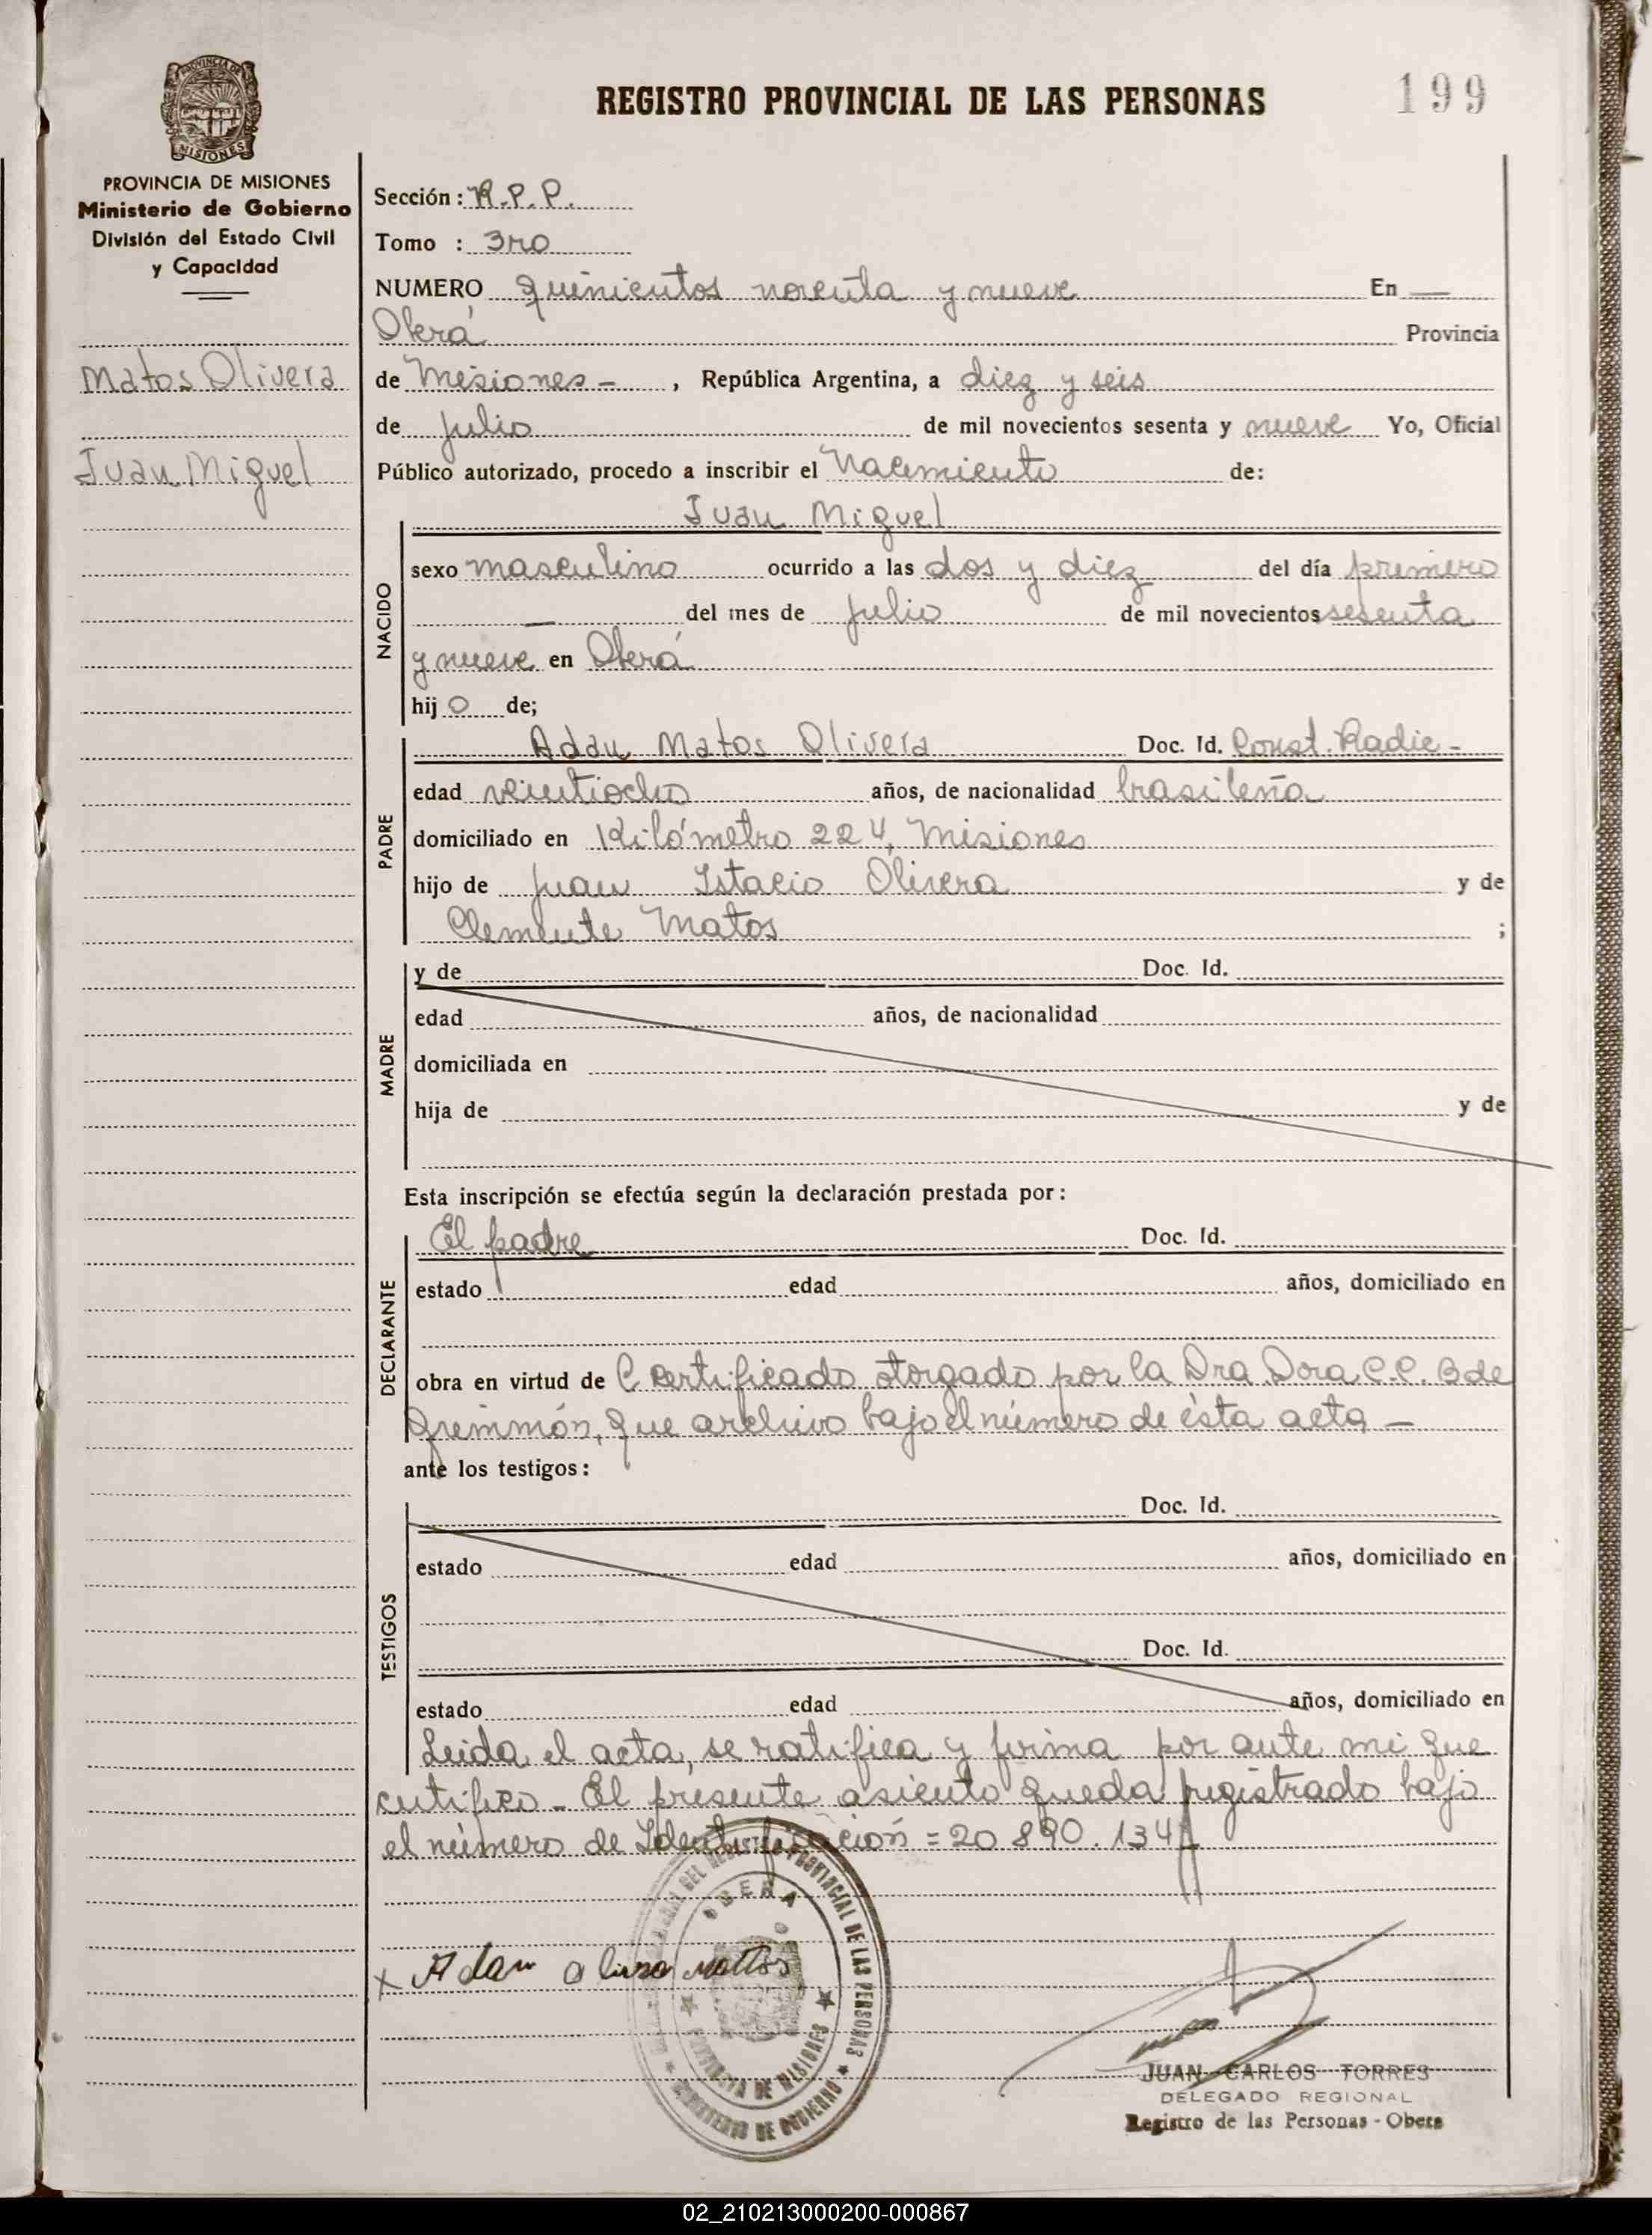 REGISTRO PROVINCIAL DE LAS PERSONAS
199
PROVINCIA DE MISIONES
MISIONES
PROVINCIA DE MISIONES
Ministerio de Gobierno
División del Estado Civil
y Capacidad
Matos Olivera
Juan Miguel
Sección: R.P.P.
Tomo : 3ro
NUMERO quinientos noventa y nueve En —
Oberá Provincia
de Misiones - , República Argentina, a diez y seis
de julio de mil novecientos sesenta y nueve Yo, Oficial
Público autorizado, procedo a inscribir el Nacimiento de:
Juan Miguel
NACIDO
sexo masculino ocurrido a las dos y diez del día primero
— del mes de julio de mil novecientos sesenta
y nueve en Oberá
hijo de;
PADRE
Adan Matos Olivera Doc. Id. Const. Radic-
edad veintiocho años, de nacionalidad brasileña
domiciliado en Kilómetro 224, Misiones
hijo de Juan Istacio Olivera y de
Clemente Matos ;
MADRE
y de Doc. Id.
edad años, de nacionalidad
domiciliada en
hija de y de
Esta inscripción se efectúa según la declaración prestada por:
DECLARANTE
El padre Doc. Id.
estado edad años, domiciliado en
obra en virtud de Certificado otorgado por la Dra Dora C.C. B de
que archivo bajo el número de ésta acta —
ante los testigos:
TESTIGOS
Doc. Id.
estado edad años, domiciliado en
Doc. Id.
estado edad años, domiciliado en
Leida el acta, se ratifica y firma por ante mi que
certifico - El presente asiento queda registrado bajo
el número de Identificación = 20.890.134
x Adan olivera mattos
OBERA
REGISTRO PROVINCIAL DE LAS PERSONAS
PROVINCIA DE MISIONES
MINISTERIO DE GOBIERNO
JUAN CARLOS TORRES
DELEGADO REGIONAL
Registro de las Personas - Obera
02_210213000200-000867